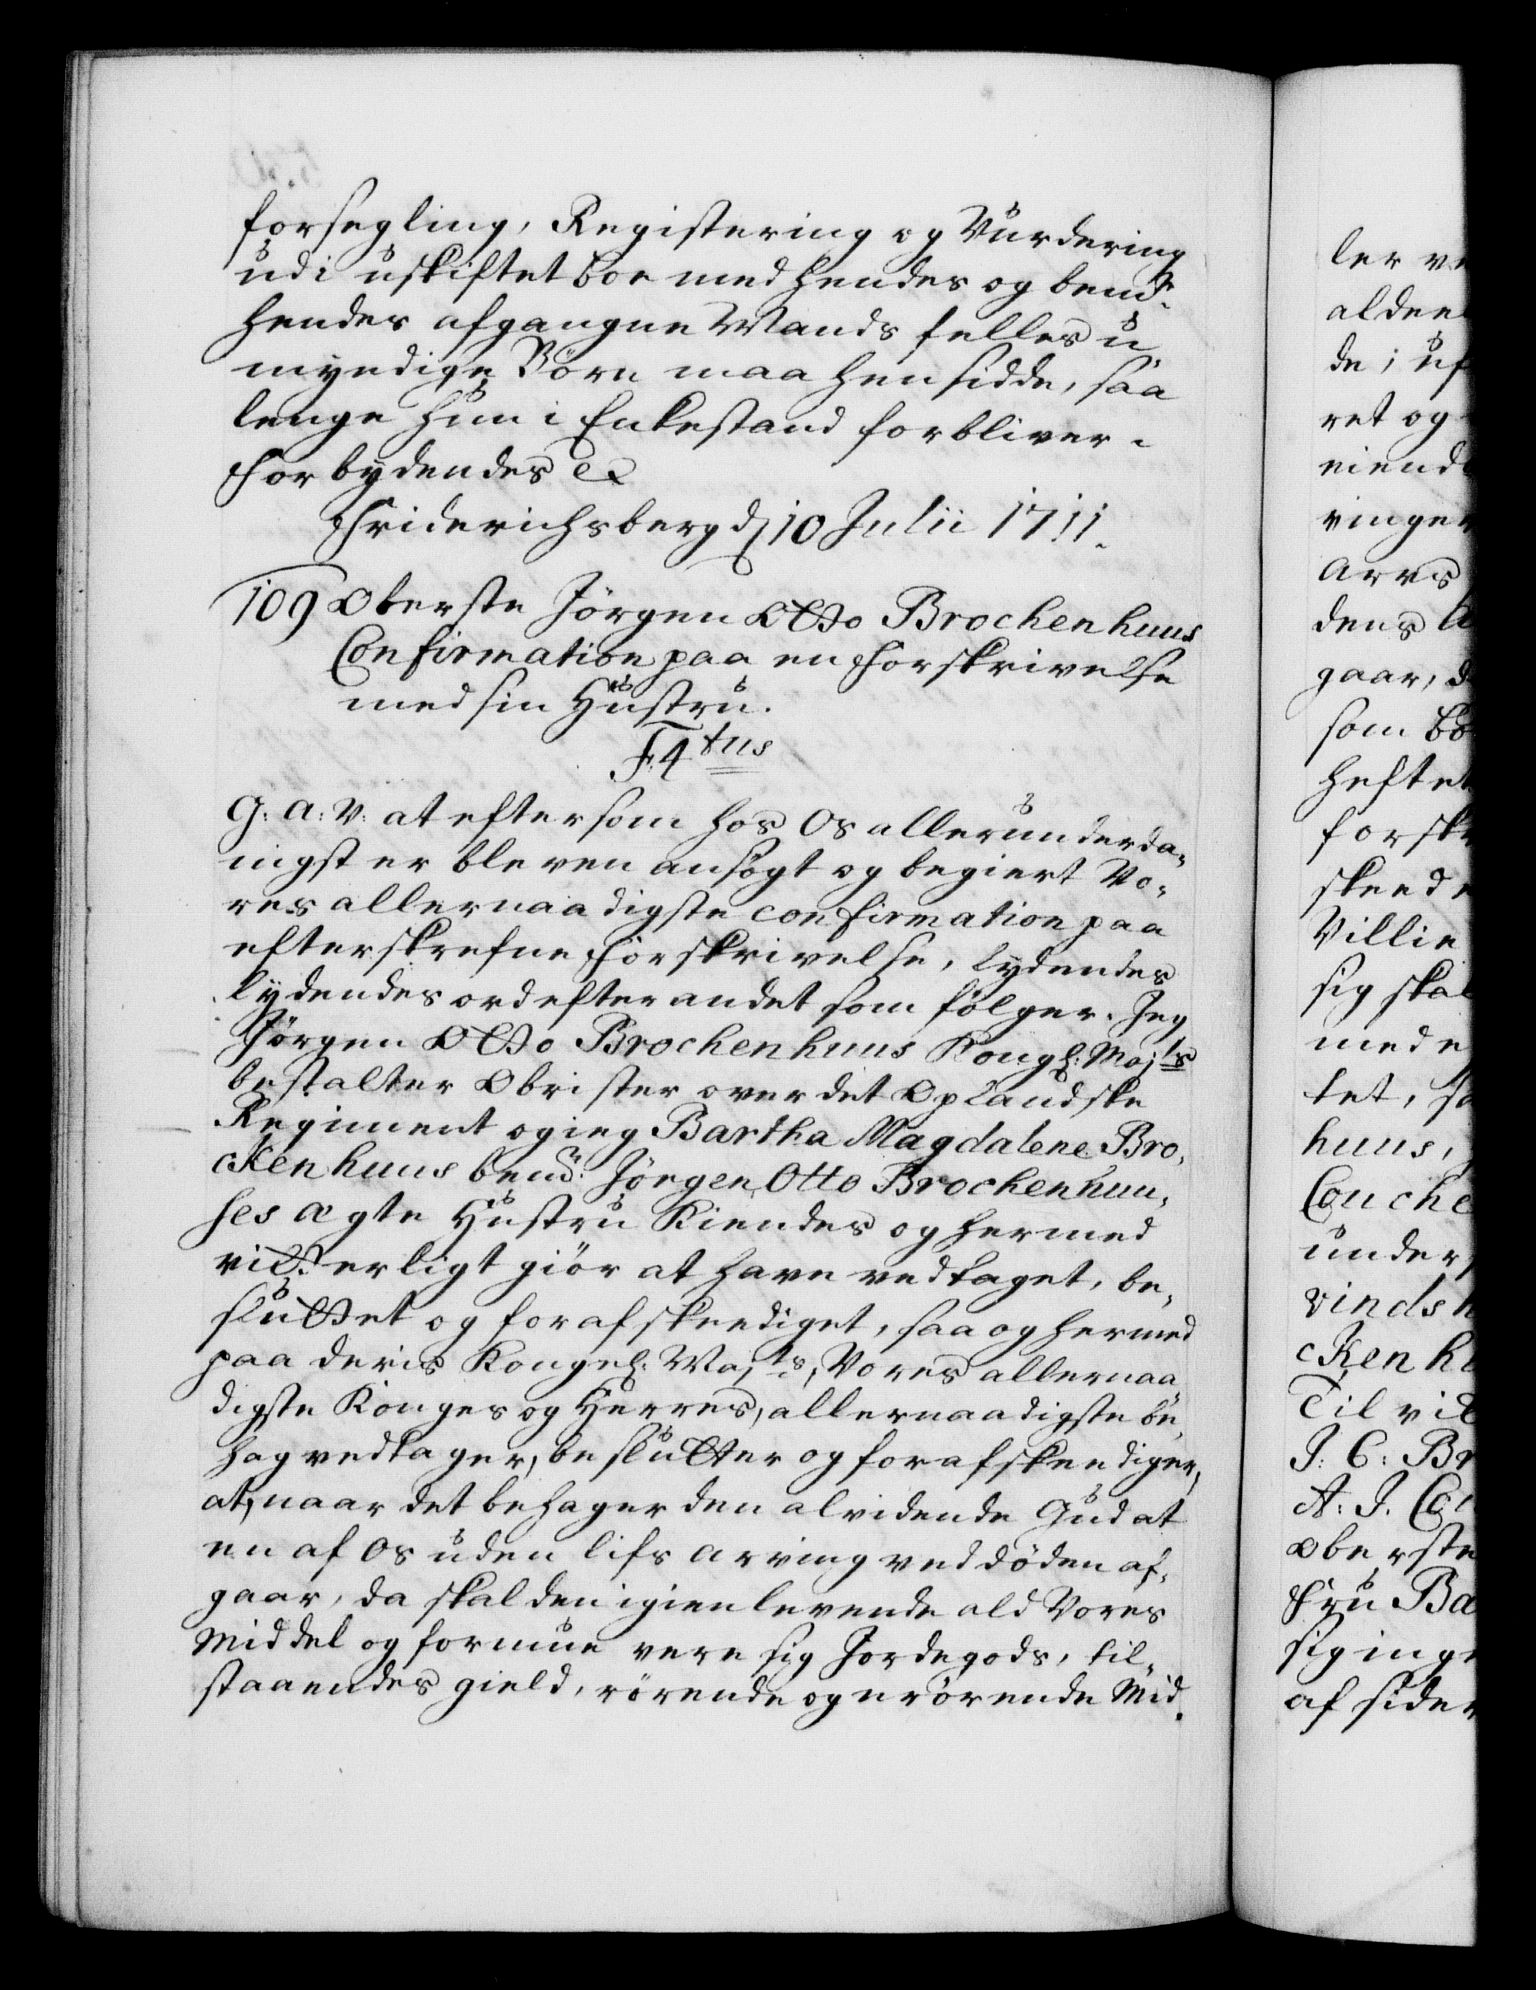 forsegling, Registering og Vurdering
udi uskiftet boe med hendes og bemte
hendes afgangne Mands felles u¬
myndige Börn maa hensidde, saa
lenge hun i Enkestand forbliver.
Forbydendes etc
Friderichsberg d 10 Julii 1711.
109 Oberste Jörgen Otto Brochenhuus
Confirmation paa en Forskrivelse
med sin Hustru.
F. 4tus
G: A: V: at eftersom hos Os allerunderda¬
nigst er bleven ansögt og begiert Vo¬
res allernaadigste confirmation paa
efterskrefne Forskrivelse, lydendes
lydendes ord efter andet som fölger. Jeg
Jörgen Otto Brochenhuus Kongl: Majts
bestalter Obrister over det Oplandske
Regiment og ieg Bartha Magdalene Bro¬
ckenhuus bemte Jörgen Otto Brochenhuu¬
ses ægte Hustru Kiendes og hermed
vitterligt giör at have vedtaget, be¬
sluttet og forafskeediget, saa og hermed
paa deris Kongel: Majts, Vores allernaa
digste Konges og Herres, allernaadigste be¬
hag vedtager, beslutter og forafskeediger,
at, naar det behager den alvidende Gud at
en af Os uden lifs arving ved döden af¬
gaar, da skal den igienlevende ald Vores
Middel og formue være sig Jordegods, til¬
staaendes gield, rörende og urörende Mid¬
ler ve
aldeel
de; uf
ret og
eiend
ringer
arvs
dens
gaar, d
som bo
heftet
forsk
skeede
Villie
sig skal
mede
tet, sa
huus,
Couche
under
vinds
cken h
Til vid
J: C: Br
A: J. Co
oberste
Fru Ba
sig inge
af sider